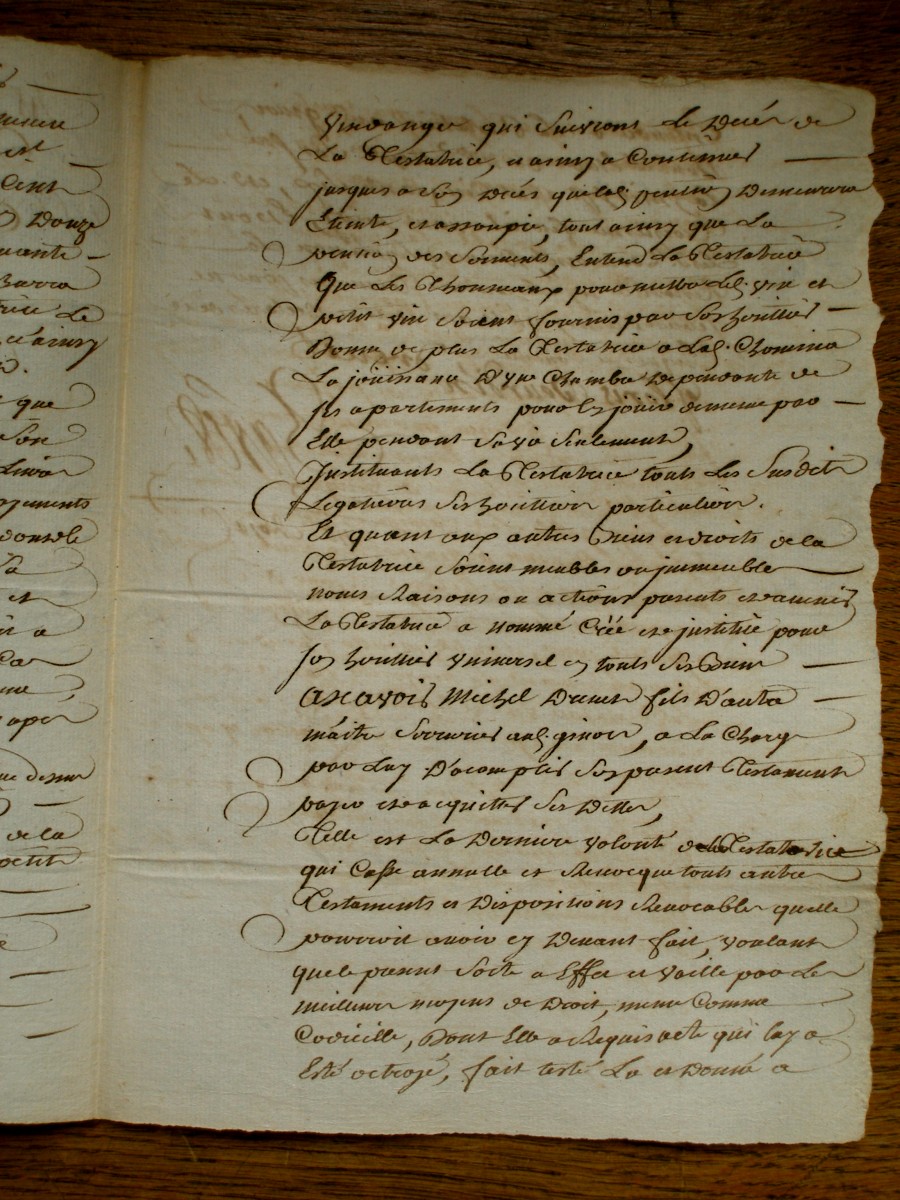 uence
est
Cent
Donze
uante
Barra
rice Le
et ainsy
que
Son
gements
La
et
it a
Car
me,
aper
de la
petit
vendanges qui Suivront Le Decés de
La Testatrice, et ainsy a Continuer
jusques a Son Decés que lad. pention Demeurera
Eteinte, et assoupie, tout ainsy que La
pention des Serments, Entend La Testatrice
Que Les Thonneaux pour mettre led. vin et
petit vin Soient fournis par Ses heritiers
Donne de plus La Testatrice a Lad. Chomina
La jöuissance D'une Chambre Dependante de
ses apartements pour En jöuir de meme par
Elle pendant Sa vie Seulement,
Jnstituants La Testatrice touts Les Susdits
Legataires Ses heritiers particuliers.
Et quant aux autres Biens et droits de la
Testatrice Soient meubles ou jmmeubles
noms Raisons ou actions presents et avenir
La Testatrice a nommé Créé et jnstitué pour
Son heritier Universel en touts Ses Biens
ascavoir Michel Drevet fils D'autre
maitre Serrurier aud. , a La Charge
par Luy D'acomplir Son present Testament
payer et acquitter Ses Dettes,
Telle est La Derniere volonté de la Testatrice
qui Casse annulle et Revocque touts autres
Testaments et Dispositions Revocables quelle
pourroit avoir cy Devant fait, voulant
que le present Sorte a Effet et vaille par Les
meilleurs moyens de Droit, meme Comme
Codicille, Dont Elle a Requis acte qui luy a
Esté octroyé, fait testé Lu et Donné a